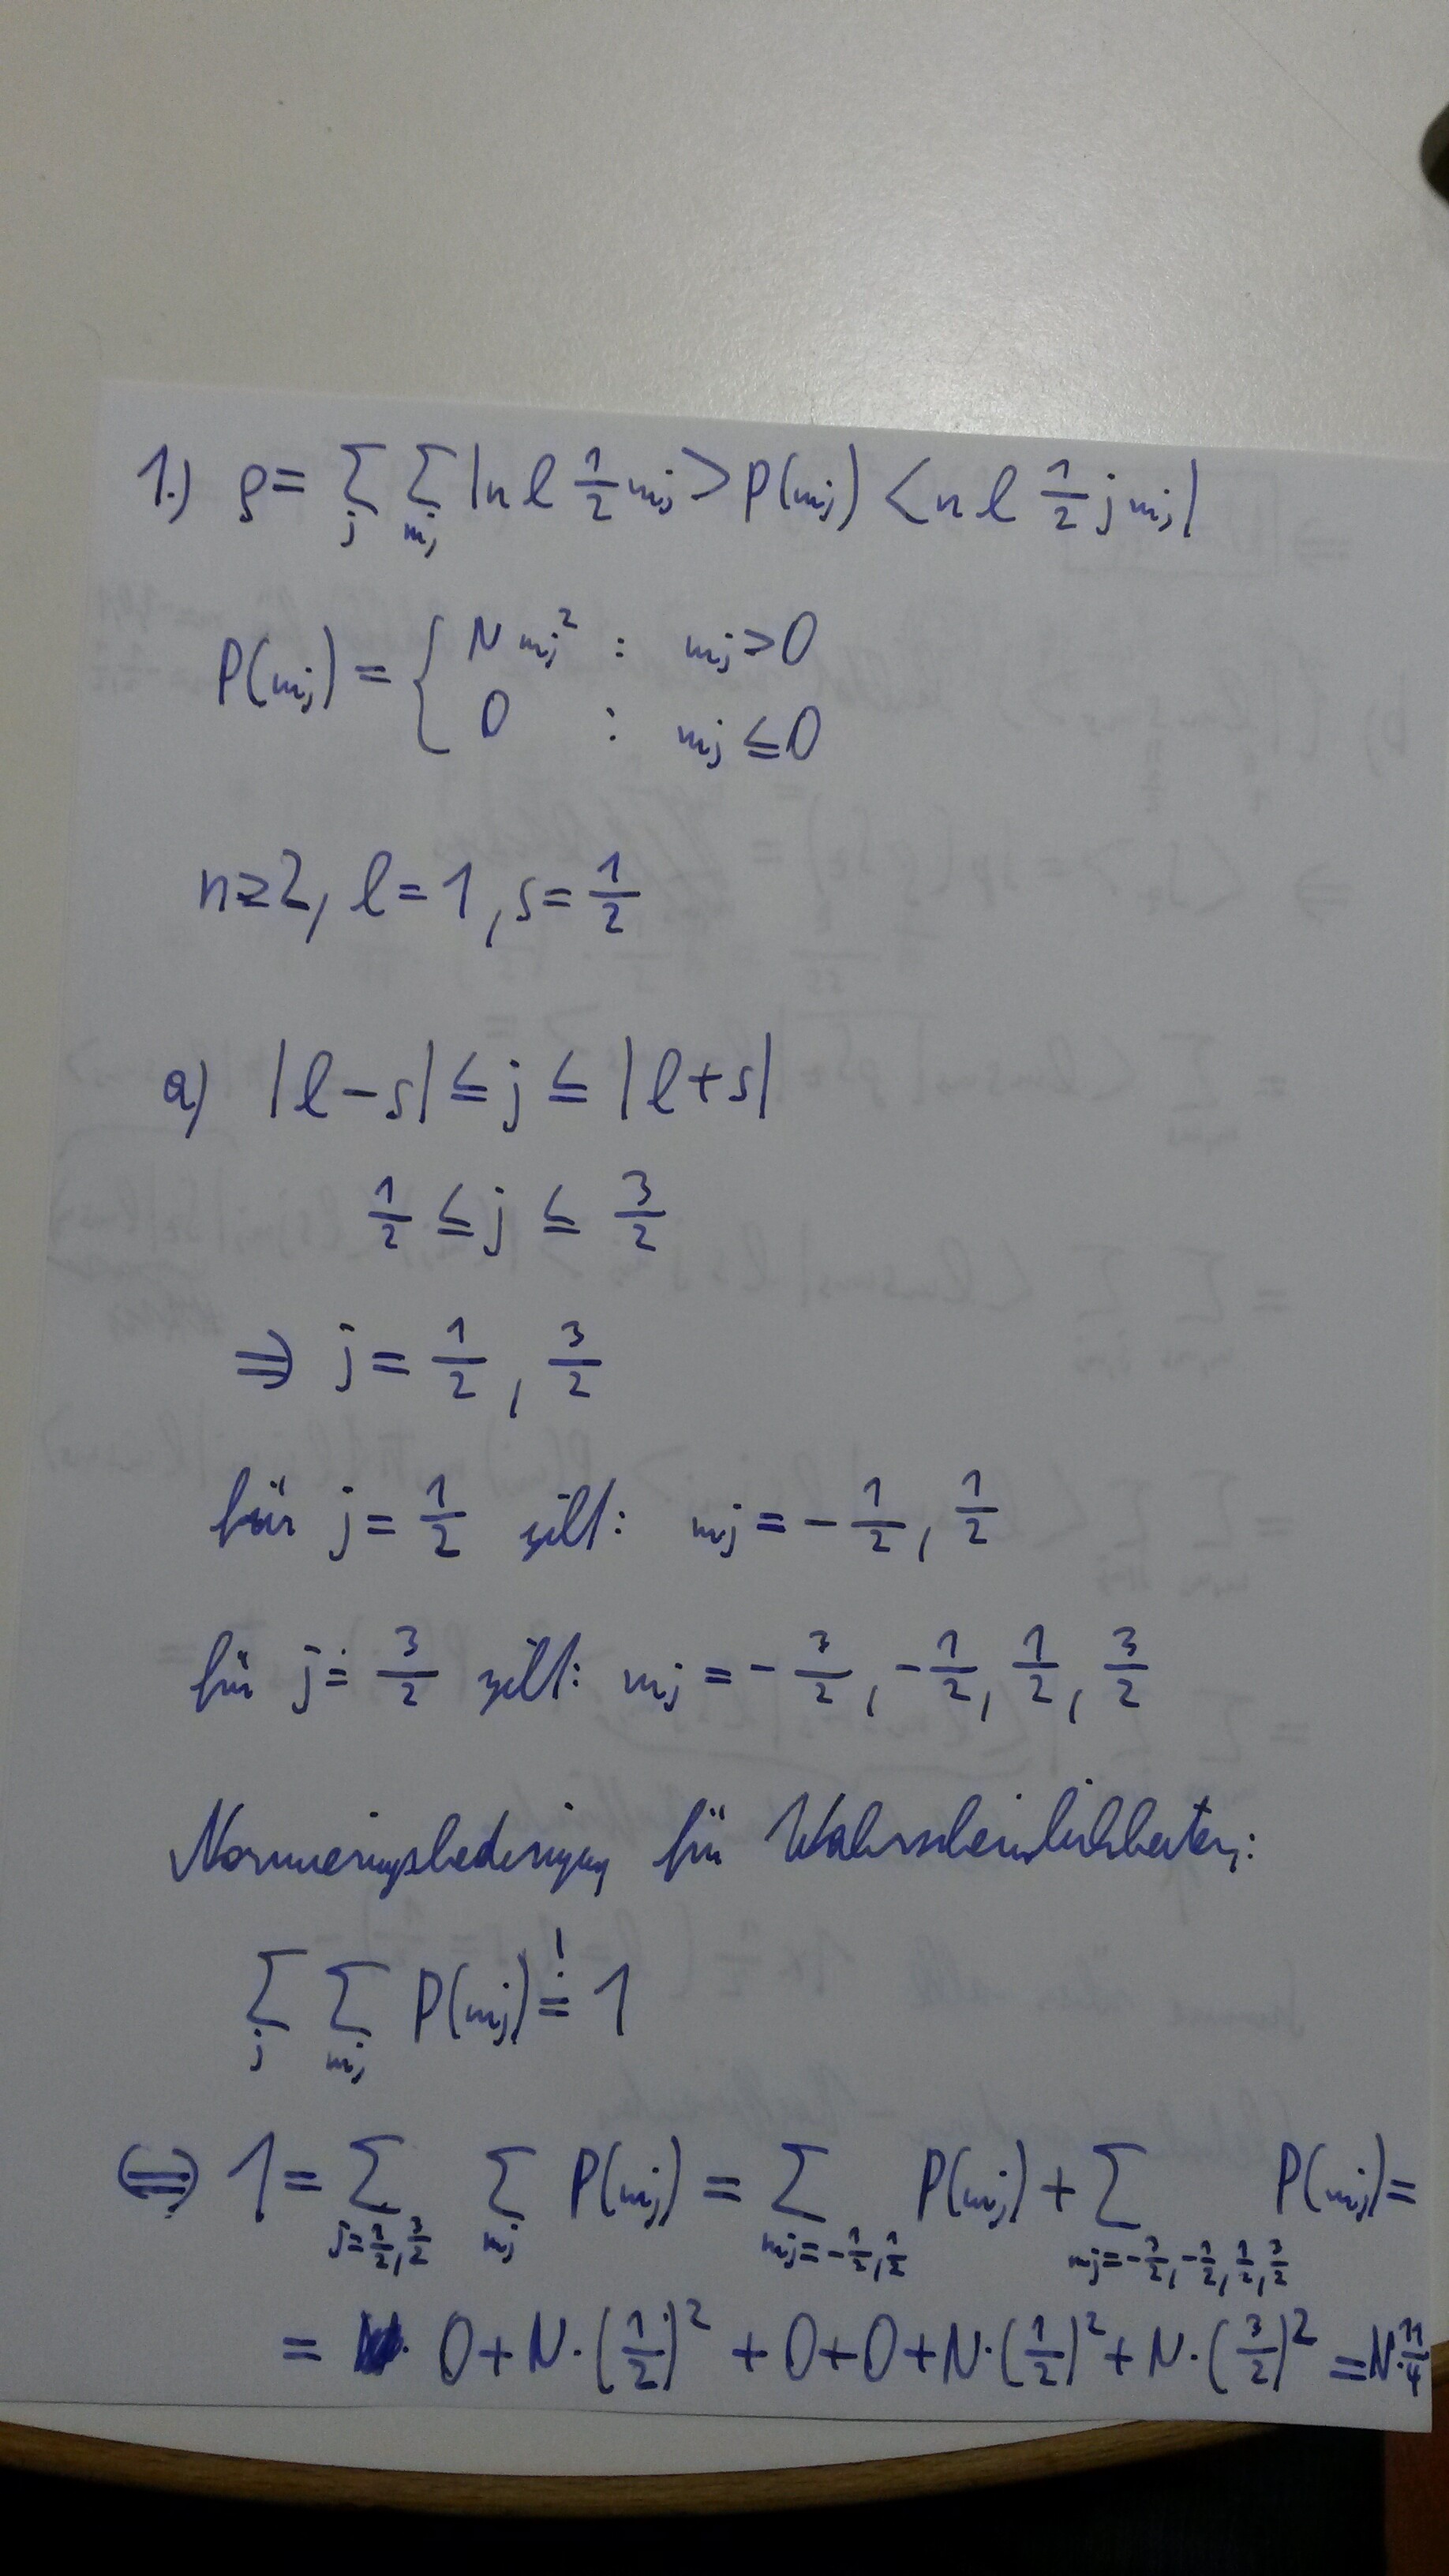 1.) ρ = Σ_j Σ_{m_j} |n l 1/2 m_j> P(m_j) <n l 1/2 j m_j|
P(m_j) = { N m_j² : m_j > 0
0 : m_j ≤ 0
n ≥ 2, l = 1, s = 1/2
a) |l - s| ≤ j ≤ |l + s|
1/2 ≤ j ≤ 3/2
⇒ j = 1/2, 3/2
für j = 1/2 gilt: m_j = -1/2, 1/2
für j = 3/2 gilt: m_j = -3/2, -1/2, 1/2, 3/2
Normierungsbedingung für Wahrscheinlichkeiten:
Σ_j Σ_{m_j} P(m_j) =! 1
⇔ 1 = Σ_{j=1/2,3/2} Σ_{m_j} P(m_j) = Σ_{m_j=-1/2,1/2} P(m_j) + Σ_{m_j=-3/2,-1/2,1/2,3/2} P(m_j) =
= 0 + N·(1/2)² + 0 + 0 + N·(1/2)² + N·(3/2)² = N·11/4